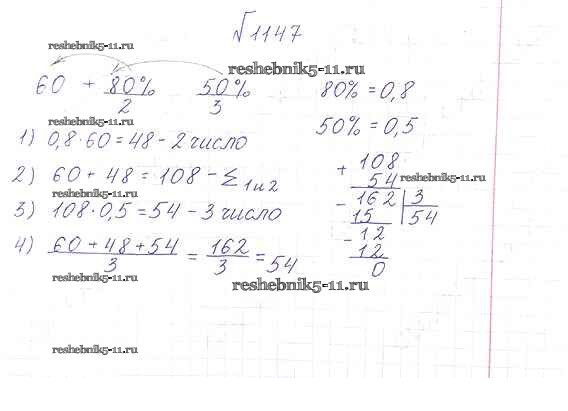 №1147
reshebnik5-11.ru
reshebnik5-11.ru
60 + 80% 50%
2 3
80% = 0,8
reshebnik5-11.ru
50% = 0,5
1) 0,8·60 = 48 – 2 число
2) 60 + 48 = 108 – Σ 1 и 2
reshebnik5-11.ru
3) 108·0,5 = 54 – 3 число
4) 60 + 48 + 54 / 3 = 162 / 3 = 54
+ 108
54 reshebnik5-11.ru
- 162 | 3
15 54
- 12
12
0
reshebnik5-11.ru
reshebnik5-11.ru
reshebnik5-11.ru